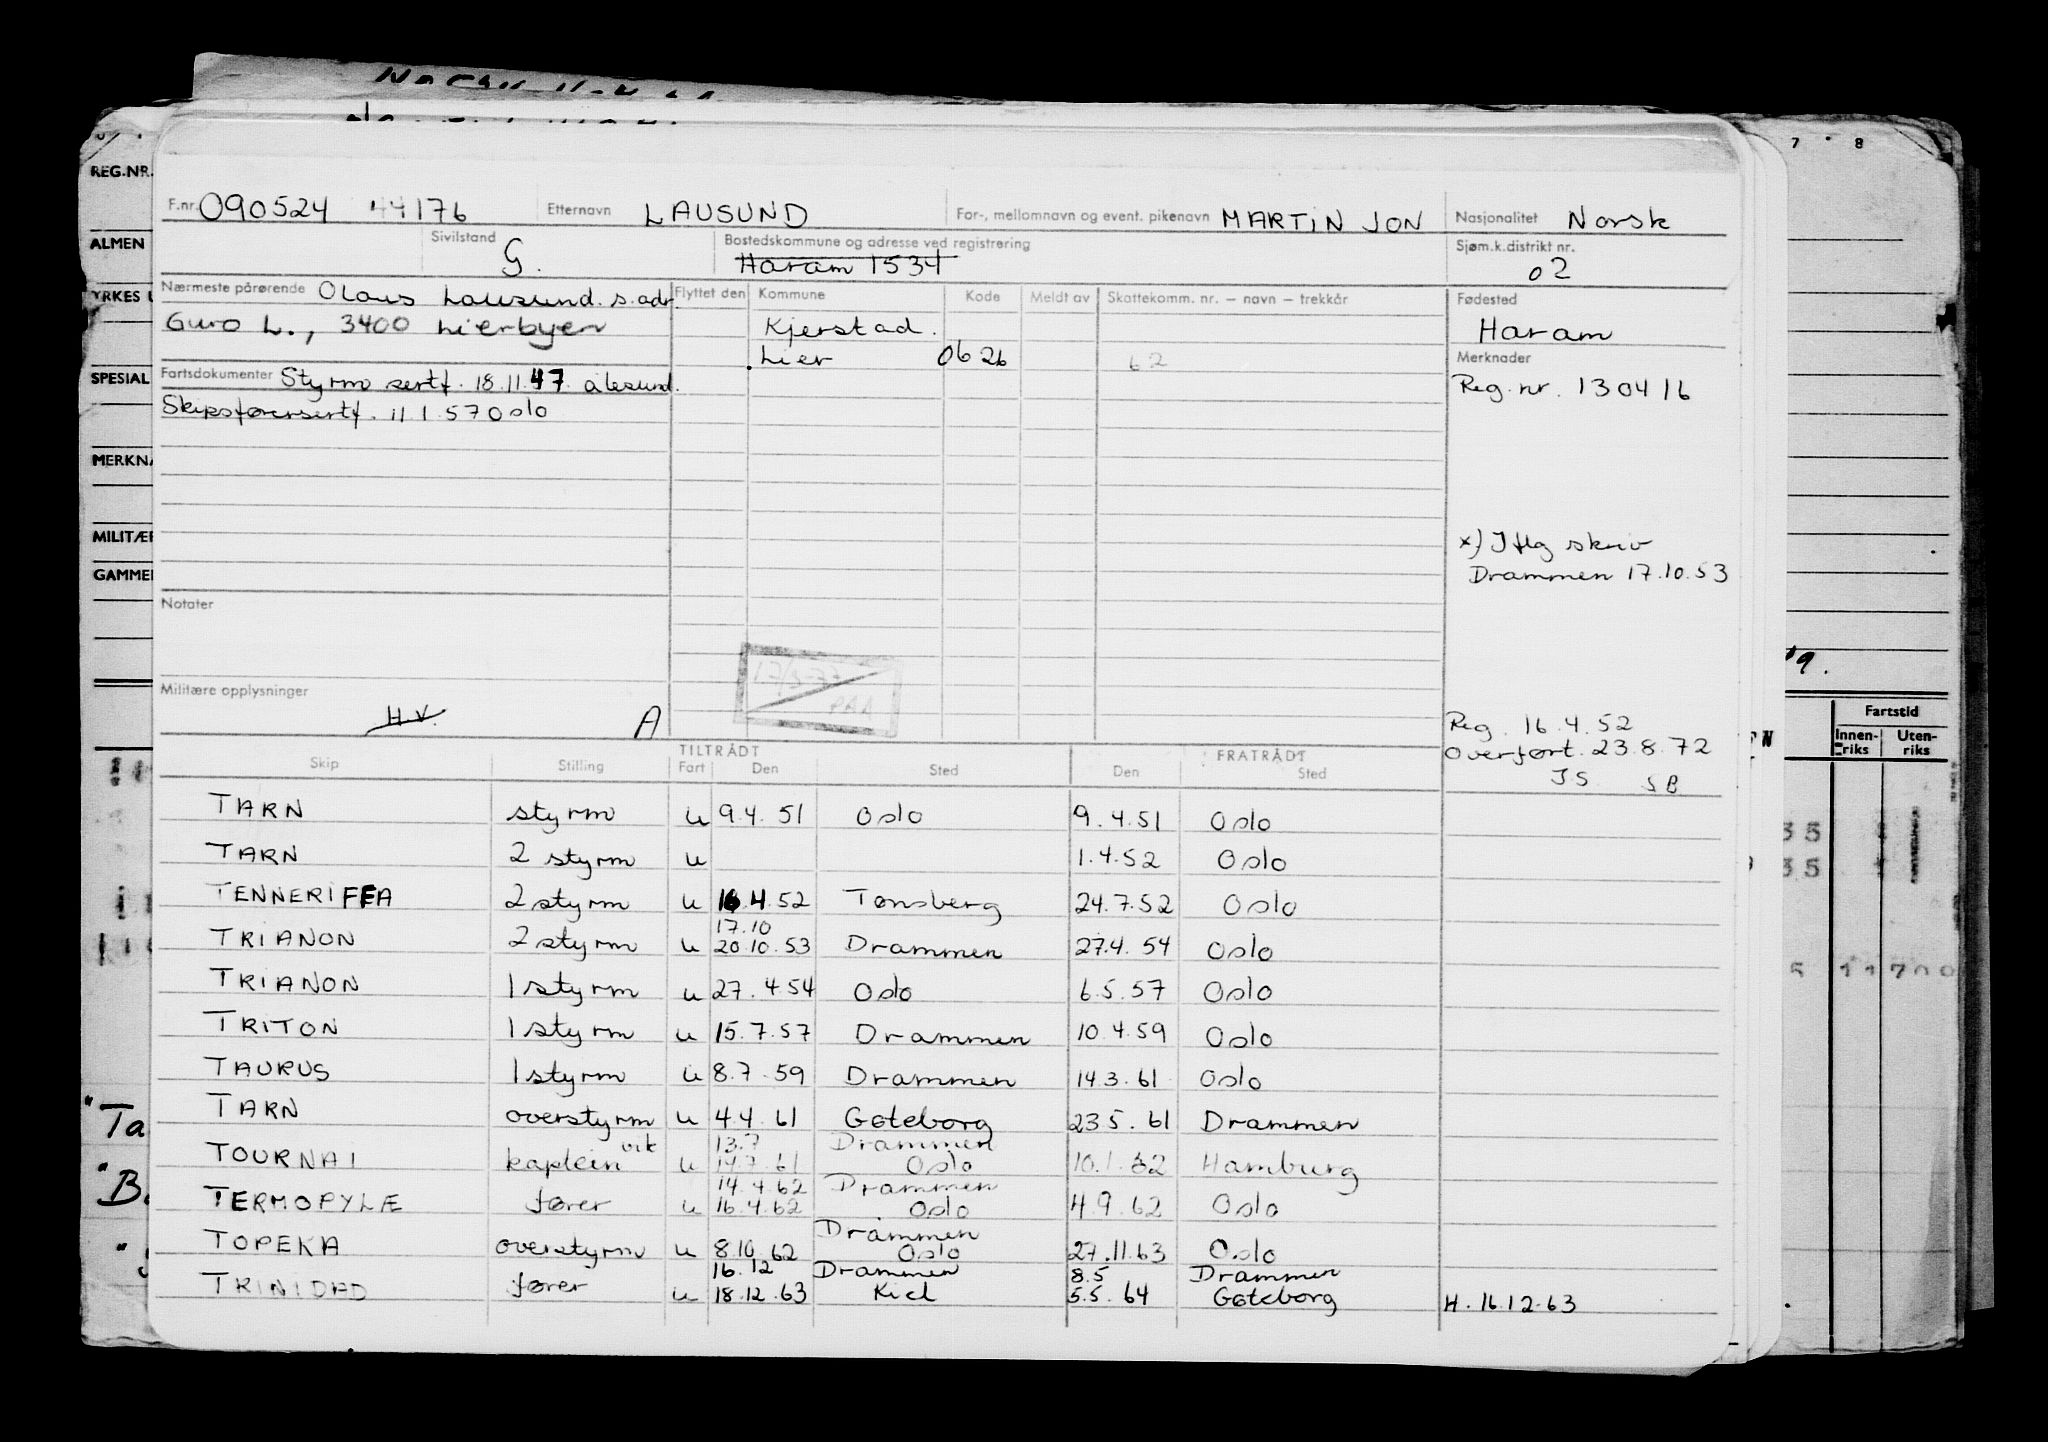 REG.NR.
ALMEN
SPESIAL
MERKNA
MILITÆR
GAMMEL
7 8
F.nr. 090524 44176 Etternavn LAUSUND For-, mellomnavn og event. pikenavn MARTIN JON Nasjonalitet Norsk
Sivilstand G. Bostedskommune og adresse ved registrering Haram 1534 Sjøm.k.distrikt nr. 02
Nærmeste pårørende Olaus Lausund. s. adr. Flyttet den Kommune Kode Meldt av Skattekomm. nr. – navn – trekkår Fødested
Guro L., 3400 Lierbyen Kjerstad. Haram
Lier 0626 62 Merknader
Fartsdokumenter Styrm sertf. 18.11.47 ålesund. Reg. nr. 130416
Skipsførersertf. 11 1.57 Oslo
x) Iflg skriv
Drammen 17.10.53
Notater
Militære opplysninger
H.V. A
Reg. 16.4.52
Overført. 23.8.72
JS SB
TILTRÅDT FRATRÅDT
Skip Stilling Fart Den Sted Den Sted
TARN styrm u 9.4.51 Oslo 9.4.51 Oslo
TARN 2 styrm u 1.4.52 Oslo
TENNERIFFA 2 styrm u 16.4.52 Tønsberg 24.7.52 Oslo
17.10
TRIANON 2 styrm u 20.10.53 Drammen 27.4.54 Oslo
TRIANON 1 styrm u 27.4.54 Oslo 6.5.57 Oslo
TRITON 1 styrm u 15.7.57 Drammen 10.4.59 Oslo
TAURUS 1 styrm u 8.7.59 Drammen 14.3.61 Oslo
TARN overstyrm u 4.4.61 Gøteborg 23.5.61 Drammen
vik 13.7 Drammen
TOURNAI kaptein u 14.7.61 Oslo 10.1.62 Hamburg
14.4.62 Drammen
TERMOPYLÆ fører u 16.4.62 Oslo 4.9.62 Oslo
Drammen
TOPEKA overstyrm u 8.10.62 Oslo 27.11.63 Oslo
16.12 Drammen 8.5 Drammen
TRINIDAD fører u 18.12.63 Kiel 5.5.64 Gøteborg H. 16.12.63
Fartstid
Innen-riks Uten-riks
35
35
5 11700
"Ta
"B